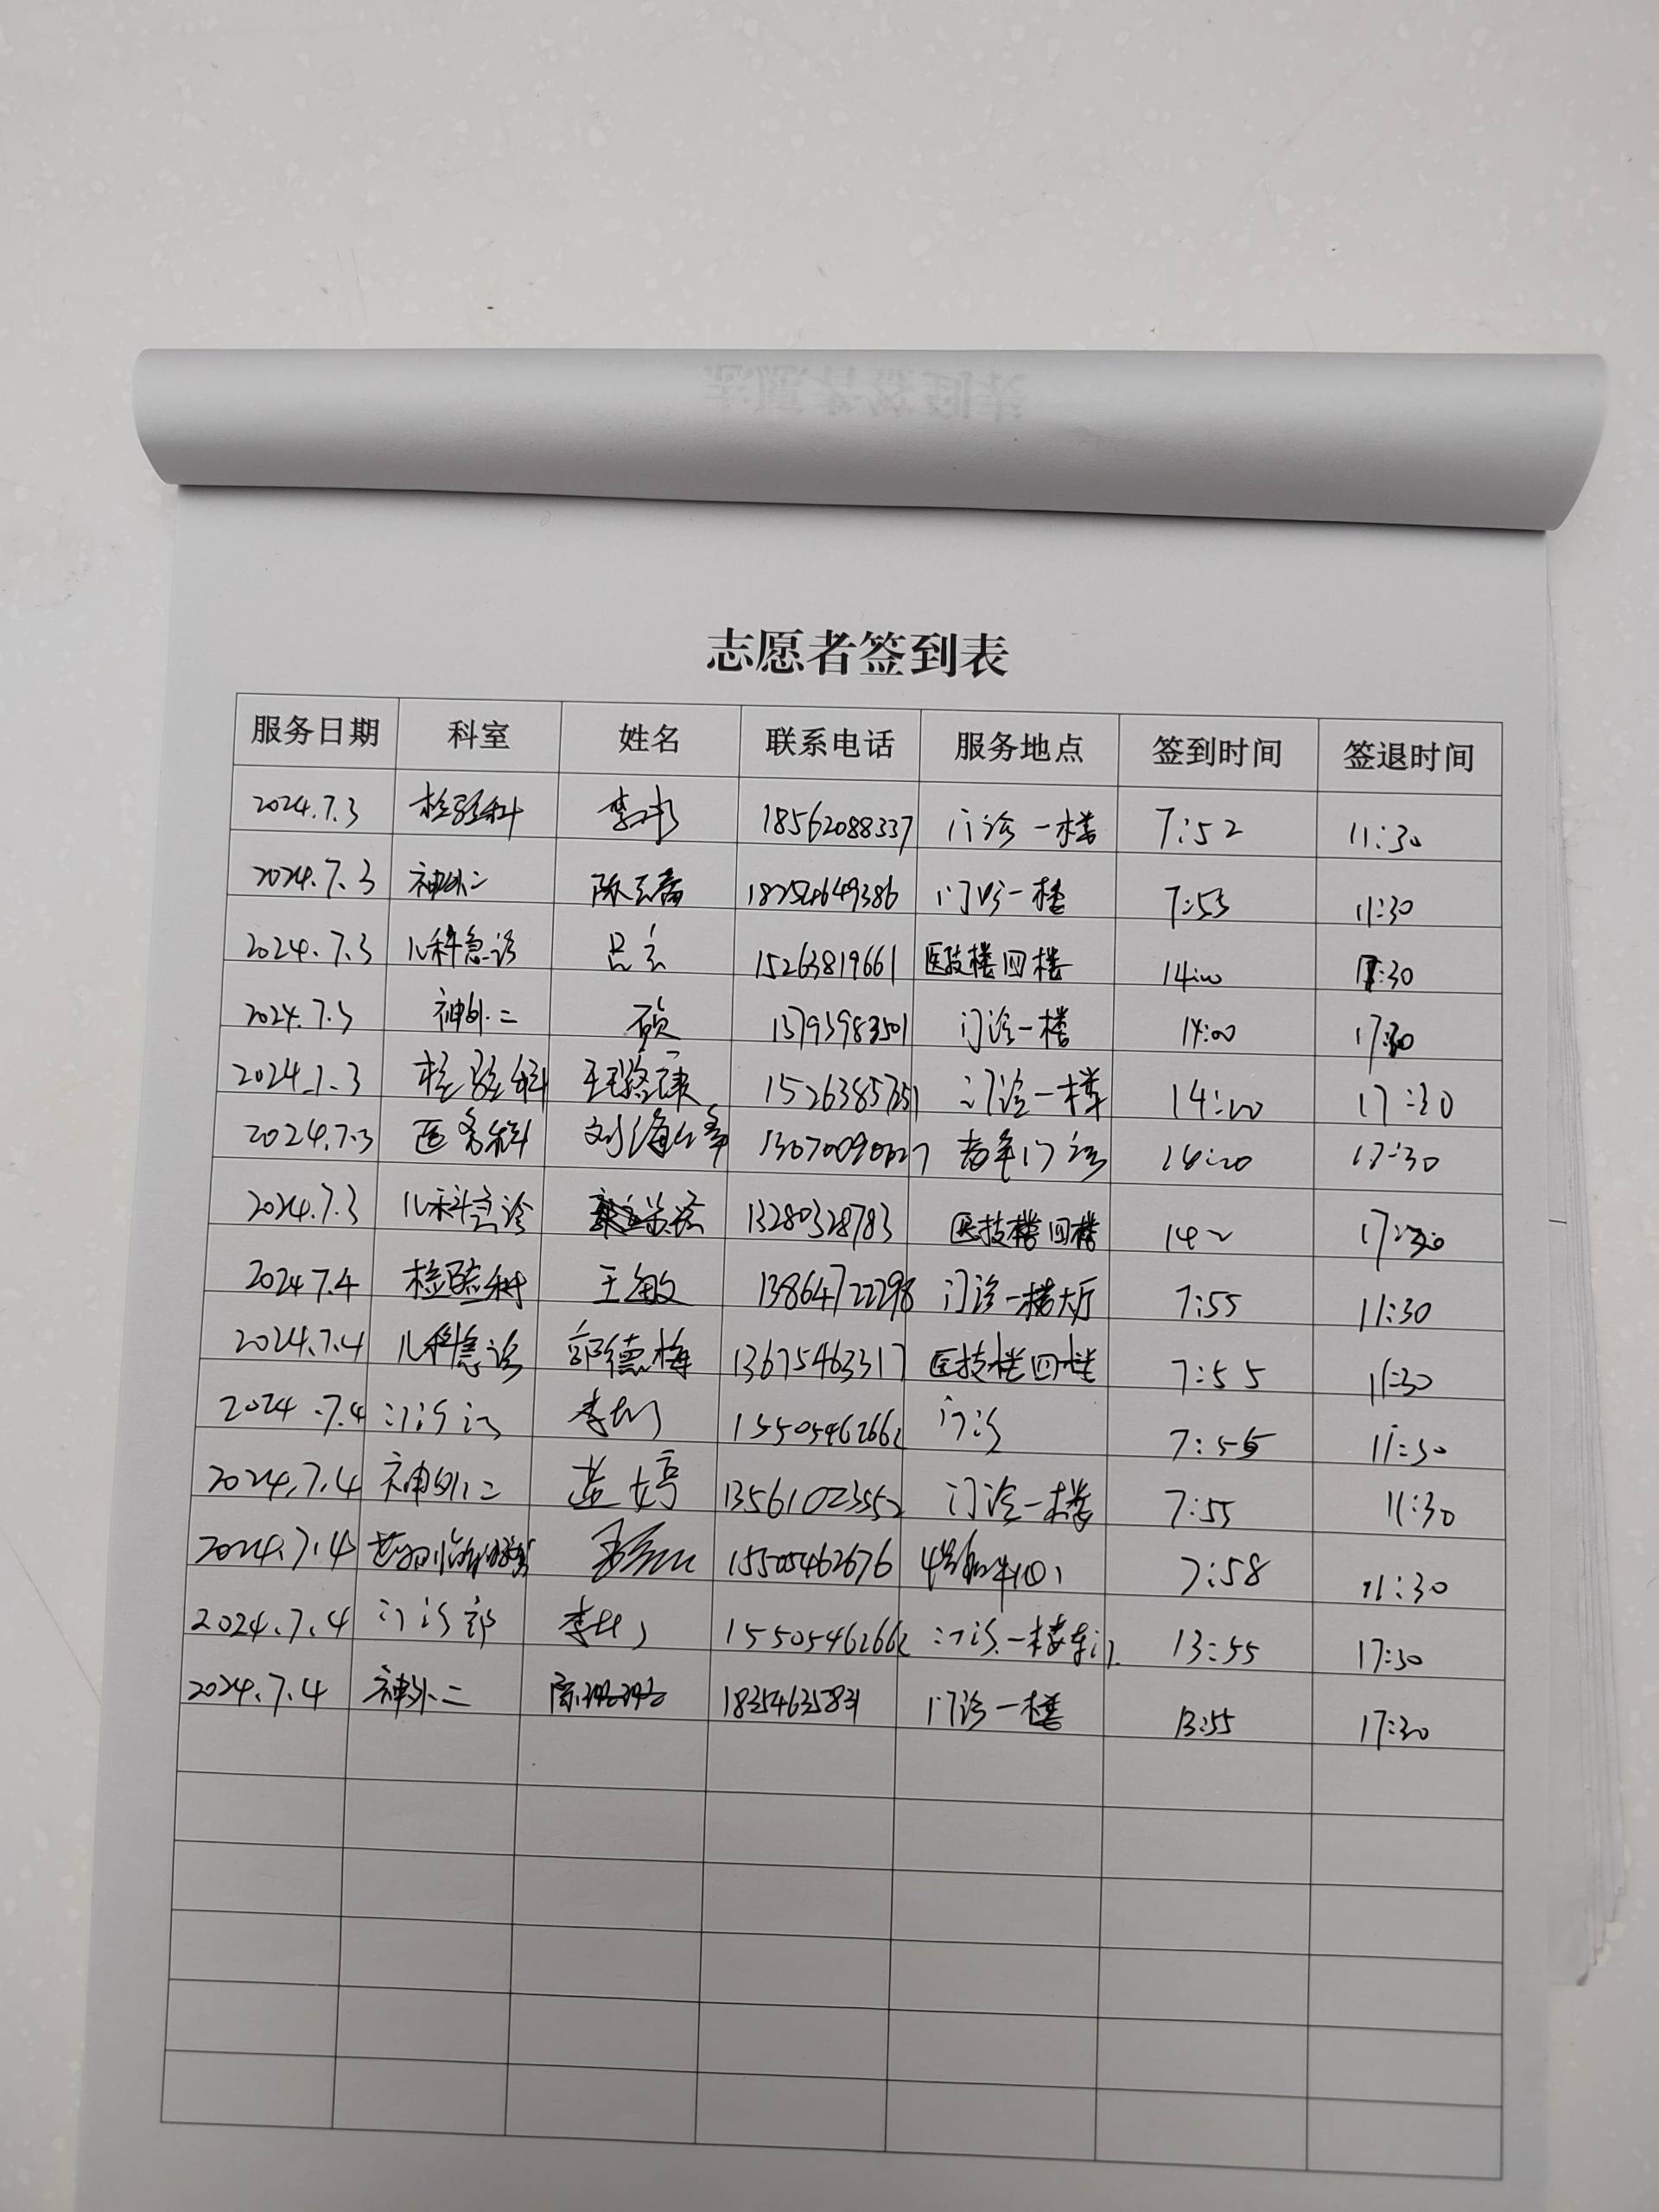 志愿者签到表
服务日期 科室 姓名 联系电话 服务地点 签到时间 签退时间
2024.7.3 检验科 李彬 18562088337 门诊一楼 7:52 11:30
2024.7.3 神外二 陈 门诊一楼 7:53 11:30
2024.7.3 儿科急诊 吕 15263819661 医技楼四楼 14:00 17:30
2024.7.3 神外二 硕 13793983501 门诊一楼 14:00 17:30
2024.7.3 检验科 门诊一楼 14:00 17:30
2024.7.3 医务科 刘海峰 老年门诊 14:00 17:30
2024.7.3 儿科急诊 13280328783 医技楼四楼 17:30
2024.7.4 检验科 王敏 13864722298 门诊一楼大厅 7:55 11:30
2024.7.4 儿科急诊 郭德梅 13675463317 医技楼四楼 7:55 11:30
2024.7.4 门诊 李 15505462662 门诊 7:55 11:30
2024.7.4 神外二 婷 13561023552 门诊一楼 7:55 11:30
2024.7.4 15505462676 7:58 11:30
2024.7.4 门诊部 李 15505462662 门诊一楼东门 13:55 17:30
2024.7.4 神外二 18354635831 门诊一楼 13:55 17:30